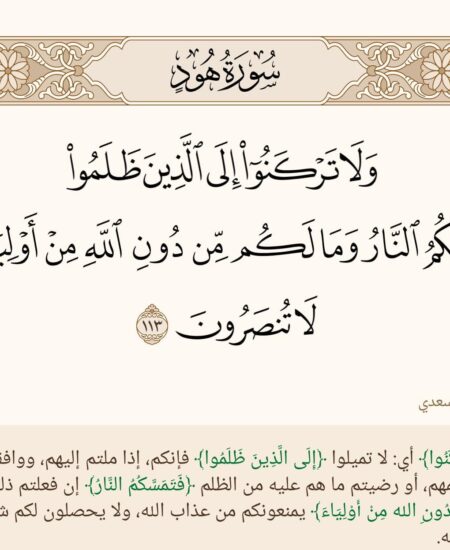 سُورَةُ هُودٍ
وَلَا تَرْكَنُوٓا۟ إِلَى ٱلَّذِينَ ظَلَمُوا۟
ٱلنَّارُ وَمَا لَكُم مِّن دُونِ ٱللَّهِ مِنْ
لَا تُنصَرُونَ ١١٣
سعدي
أي: لا تميلوا ﴿إلَى الَّذِينَ ظَلَمُوا﴾ فإنكم، إذا ملتم إليهم،
أو رضيتم ما هم عليه من الظلم ﴿فَتَمَسَّكُمُ النَّارُ﴾ إن فعلتم
الله مِنْ أَوْلِيَاءَ﴾ يمنعونكم من عذاب الله، ولا يحصلون لكم